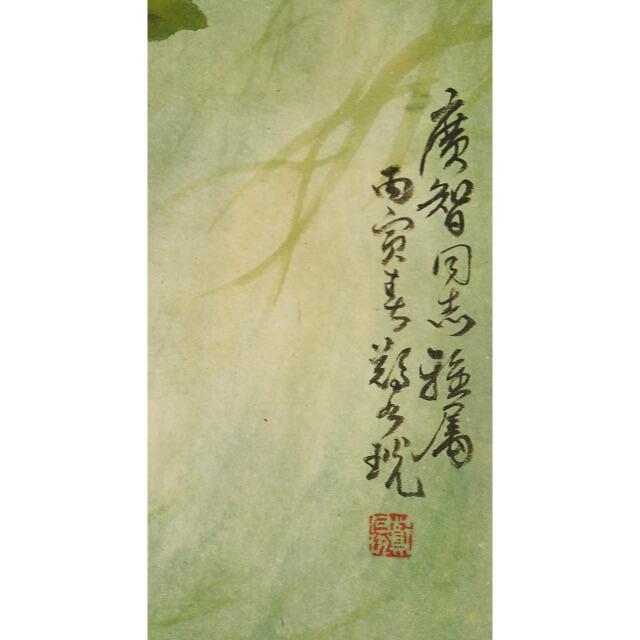 廣智同志雅属
丙寅春鄭乃珖